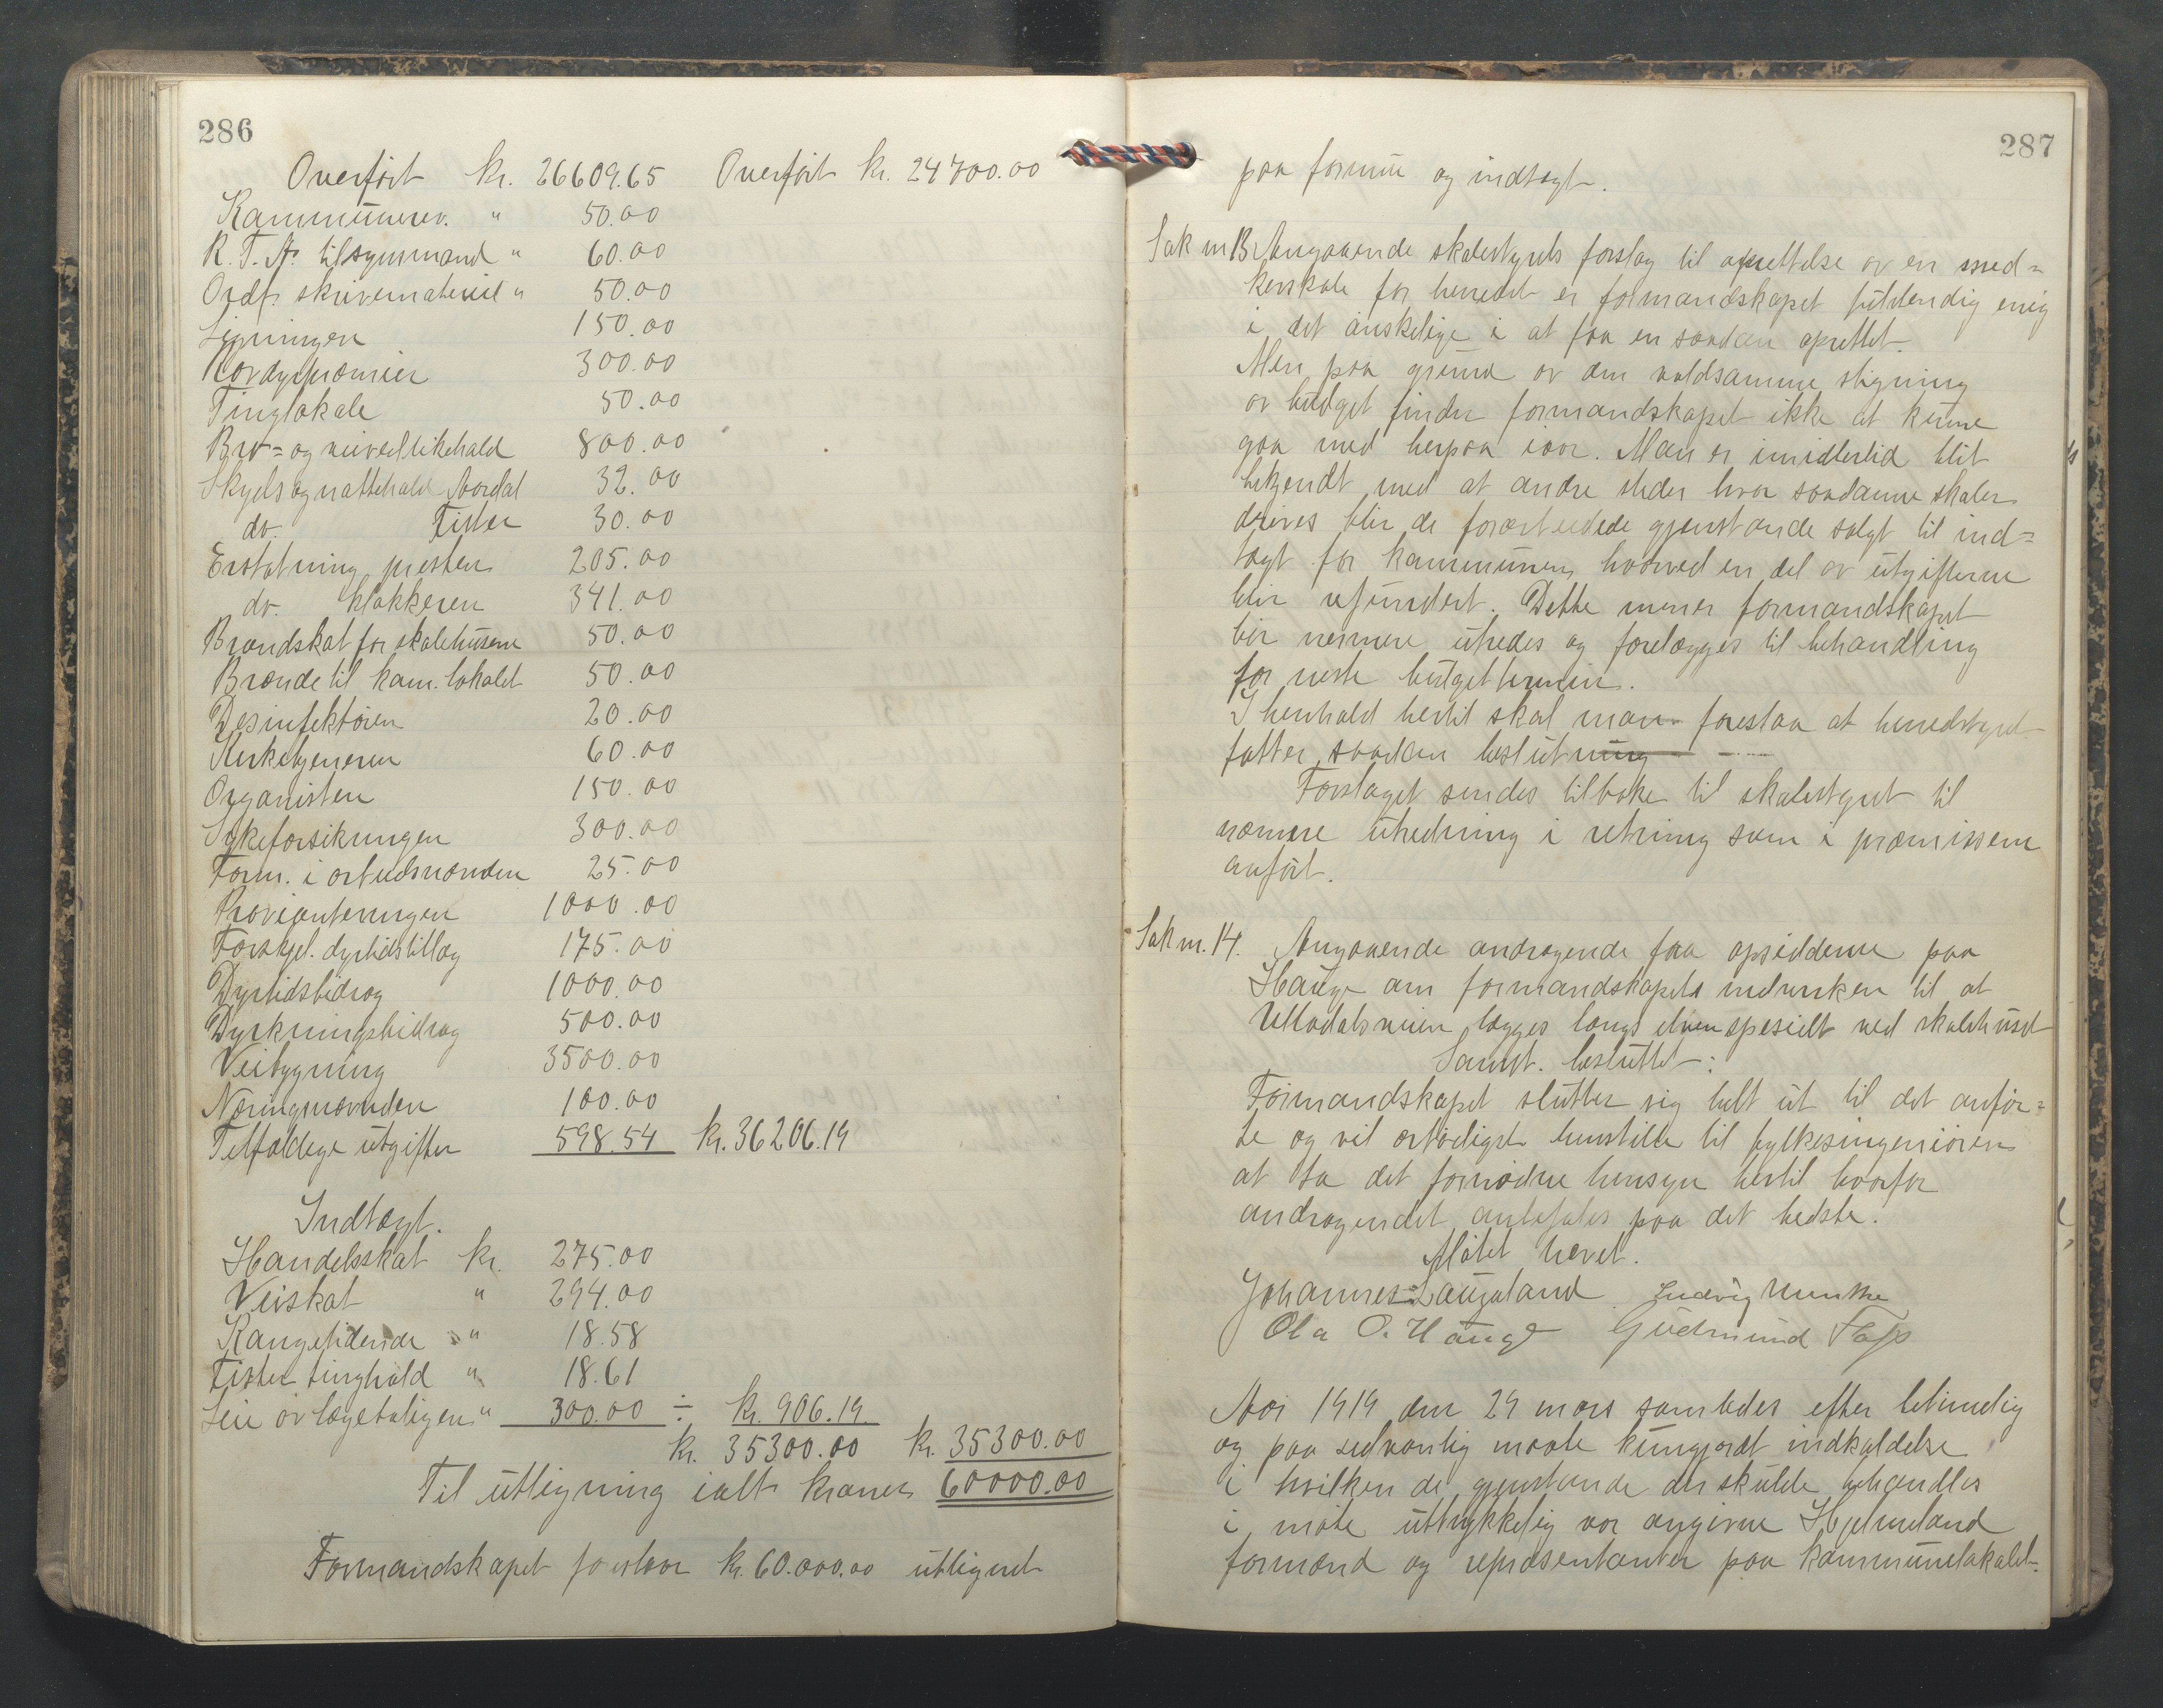 286
Overført kr. 26609.65 Overført kr. 24700.00
Kammunerev. " 50.00
R. T. A. tilsynsmand " 60.00
Ordf. skrivemateriel " 50.00
Ligningen 150.00
Rovdyrpræmier 300.00
Tinglokale 50.00
Bro= og veivedlikehald 800.00
Skyds og nattehald Aardal 32.00
do. Fister 30.00
Erstatning presten 205.00
do. klokkeren 341.00
Brandskat for skolehusene 50.00
Brænde til kom. lokalet 50.00
Desinfektøren 20.00
Kirketjeneren 60.00
Organisten 150.00
Sykeforsikringen 300.00
Form. i arbeidsnævnden 25.00
Provianteringen 1000.00
Forskjel. dyrtidstillæg 175.00
Dyrtidsbidrag 1000.00
Dyrkningsbidrag 500.00
Veibygning 3500.00
Næringsnævnden 100.00
Telfældige utgifter 598.54 kr. 36206.19
Indtægt.
Handelsskat kr. 275.00
Veiskat " 294.00
Rangefidende " 18.58
Fister tinghald " 18.61
Leie av lægeboligen " 300.00 ÷ kr. 906.19
kr. 35300.00 kr. 35300.00
Til utligning ialt kroner 60000.00
Formandskapet foreslaar kr. 60.000.00 utlignet
287
paa formue og indtægt.
Sak nr 13 Angaaende skolestyrets forslag til oprettelse av en sned=
kerskole for herredet er formandskapet fuldendig enig
i det ønskelige i at faa en saadan oprettet.
Men paa grund av den voldsomme stigning
av budget finder formandskapet ikke at kunne
gaa med herpaa iaar. Man er imidlertid blit
bekjendt med at andre steder hvor saadanne skoler
drives blir de forarbeidede gjenstande solgt til ind=
tægt for kommunen, hvorved en del av utgifterne
blir refundert. Dette mener formandskapet
bør nærmere utredes og forelægges til behandling
for neste budgettermin.
I henhold hertil skal man foreslaa at herredstyret
fatter saadan beslutning
Forslaget sendes tilbake til skolestyret til
nærmere utredning i retning som i præmissene
anført.
Sak nr. 14. Angaaende andragende fra opsidderne paa
Hauge om formandskapets medvirken til at
Ulladalsveien lægges langs elven spesielt ved skolehuset
Samst. besluttet:
Formandskapet slutter sig helt ut til det anfør=
te og vil ærbødigst henstille til fylkesingeniøren
at ta det fornødne hensyn hertil hvorfor
andragendet anbefales paa det bedste.
Møtet hævet.
Johannes Laugaland Ludvig Munthe
Ola O. Hauge Gudmund Flaps
Aar 1919 den 29 mars samledes efter betimelig
og paa sedvanlig maate kungjordt indkaldelse
i hvilken de gjenstande der skulde behandles
i møte uttrykkelig var angivne Hjelmeland
formænd og repræsentanter paa kommunelokalet.